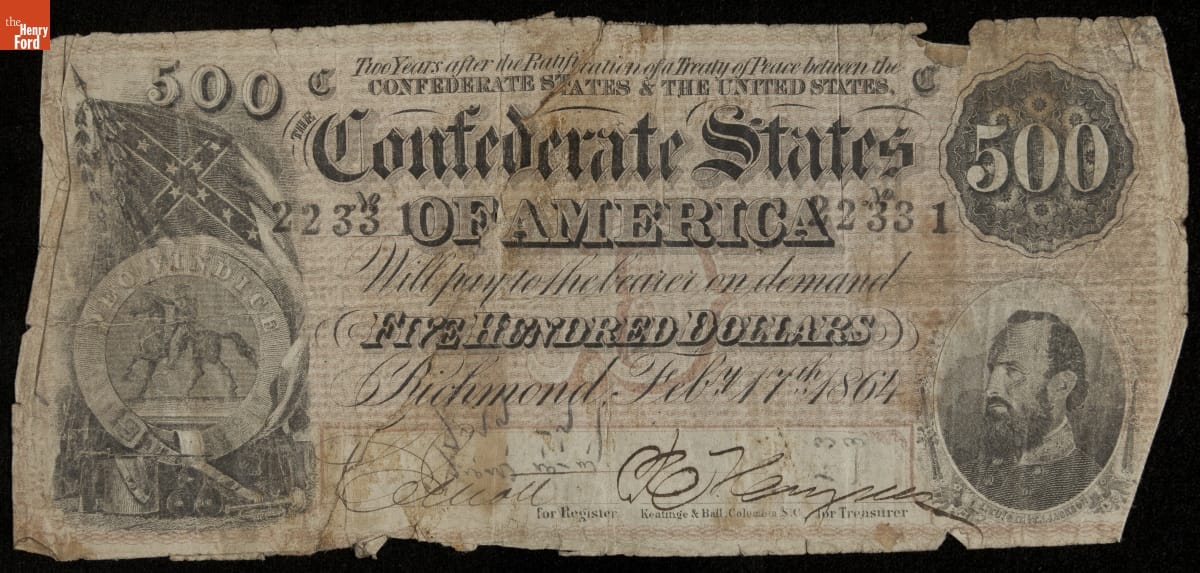 the
Henry
Ford
500 C Two Years after the Ratification of a Treaty of Peace between the C
CONFEDERATE STATES & THE UNITED STATES,
THE Confederate States
500
No 22331 OF AMERICA No 22331
DEO VINDICE
Will pay to the bearer on demand
FIVE HUNDRED DOLLARS
Richmond, Feby. 17th 1864
for Register Keatinge & Ball, Columbia S.C. for Treasurer